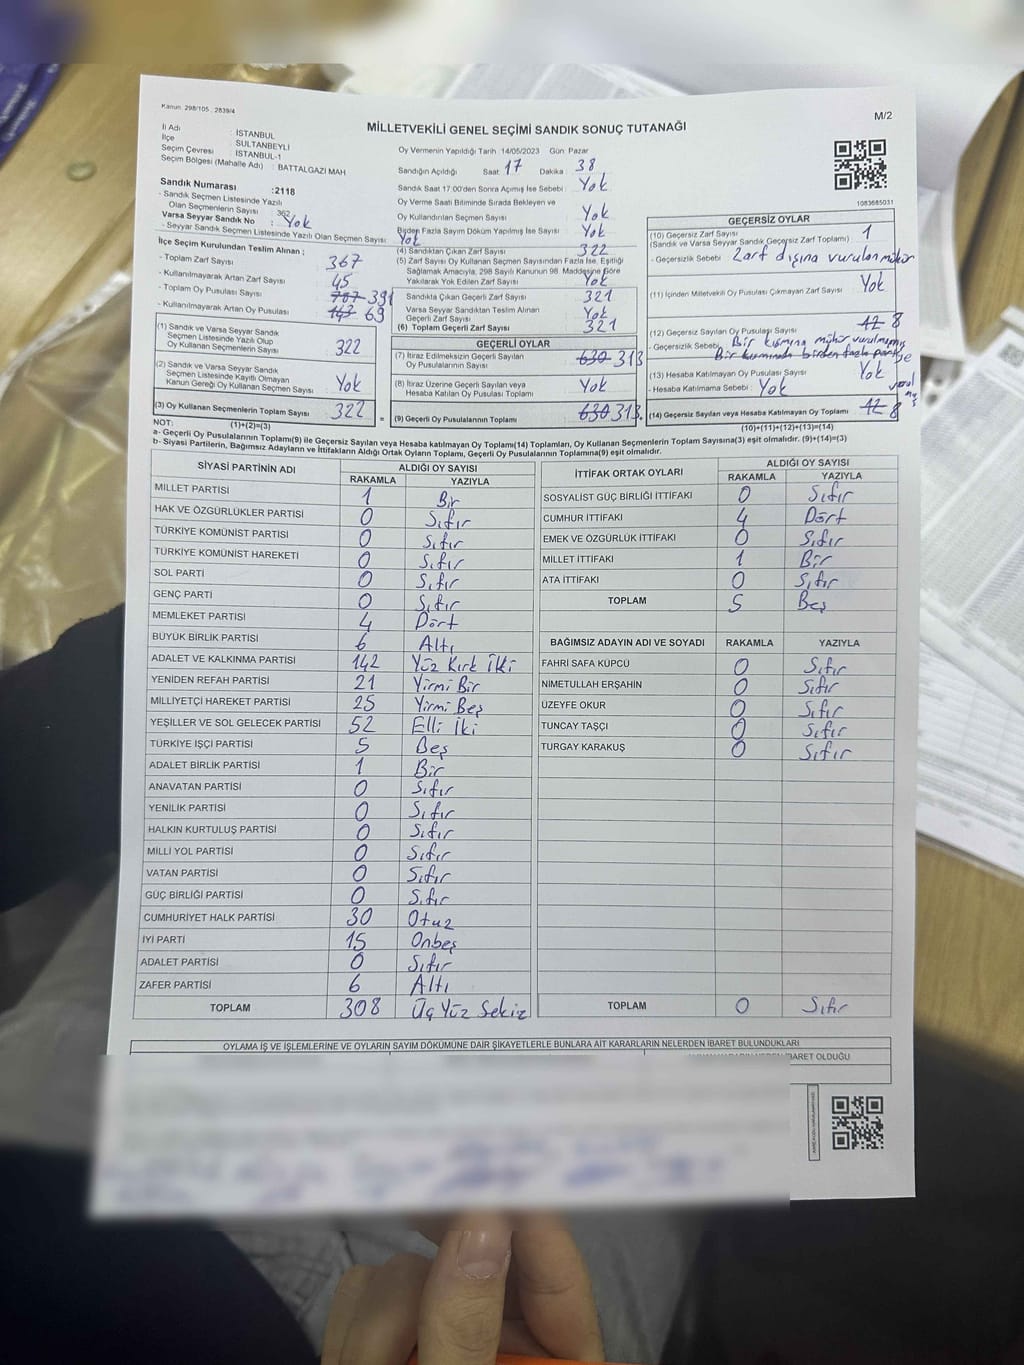 Kanun: 298/105 , 2839/4
M/2
MİLLETVEKİLİ GENEL SEÇİMİ SANDIK SONUÇ TUTANAĞI
İl Adı : İSTANBUL
İlçe : SULTANBEYLİ
Seçim Çevresi : İSTANBUL-1
Seçim Bölgesi (Mahalle Adı) : BATTALGAZİ MAH.
Sandık Numarası :2118
- Sandık Seçmen Listesinde Yazılı
Olan Seçmenlerin Sayısı : 362
Varsa Seyyar Sandık No : Yok
- Seyyar Sandık Seçmen Listesinde Yazılı Olan Seçmen Sayısı: Yok
İlçe Seçim Kurulundan Teslim Alınan ;
- Toplam Zarf Sayısı 367
- Kullanılmayarak Artan Zarf Sayısı 45
- Toplam Oy Pusulası Sayısı 787 391
- Kullanılmayarak Artan Oy Pusulası 143 69
(1) Sandık ve Varsa Seyyar Sandık
Seçmen Listesinde Yazılı Olup
Oy Kullanan Seçmenlerin Sayısı 322
(2) Sandık ve Varsa Seyyar Sandık
Seçmen Listesinde Kayıtlı Olmayan
Kanun Gereği Oy Kullanan Seçmen Sayısı Yok
(3) Oy Kullanan Seçmenlerin Toplam Sayısı 322 =
Oy Vermenin Yapıldığı Tarih :14/05/2023 Gün: Pazar
Sandığın Açıldığı Saat: 17 Dakika : 38
Sandık Saat 17:00'den Sonra Açılmış İse Sebebi : Yok
Oy Verme Saati Bitiminde Sırada Bekleyen ve
Oy Kullandırılan Seçmen Sayısı : Yok
Birden Fazla Sayım Döküm Yapılmış İse Sayısı : Yok
(4) Sandıktan Çıkan Zarf Sayısı 322
(5) Zarf Sayısı Oy Kullanan Seçmen Sayısından Fazla İse, Eşitliği
Sağlamak Amacıyla, 298 Sayılı Kanunun 98. Maddesine Göre
Yakılarak Yok Edilen Zarf Sayısı: Yok
Sandıkta Çıkan Geçerli Zarf Sayısı 321
Varsa Seyyar Sandıktan Teslim Alınan
Geçerli Zarf Sayısı: Yok
(6) Toplam Geçerli Zarf Sayısı 321
GEÇERLİ OYLAR
(7) İtiraz Edilmeksizin Geçerli Sayılan
Oy Pusulasının Sayısı: 630 313
(8) İtiraz Üzerine Geçerli Sayılan veya
Hesaba Katılan Oy Pusulası Toplamı Yok
(9) Geçerli Oy Pusulalarının Toplamı 630 313.
1083685031
GEÇERSİZ OYLAR
(10) Geçersiz Zarf Sayısı 1
(Sandık ve Varsa Seyyar Sandık Geçersiz Zarf Toplamı)
- Geçersizlik Sebebi : Zarf dışına vurulan mühür
(11) İçinden Milletvekili Oy Pusulası Çıkmayan Zarf Sayısı : Yok
(12) Geçersiz Sayılan Oy Pusulası Sayısı 12 8
- Geçersizlik Sebebi: Bir kısmına mühür vurulmamış
Bir kısmında birden fazla partiye
vurulmuş
(13) Hesaba Katılmayan Oy Pusulası Sayısı Yok
- Hesaba Katılmama Sebebi : Yok
(14) Geçersiz Sayılan veya Hesaba Katılmayan Oy Toplamı 12 8
NOT: (1)+(2)=(3) (10)+(11)+(12)+(13)=(14)
a- Geçerli Oy Pusulalarının Toplamı(9) ile Geçersiz Sayılan veya Hesaba katılmayan Oy Toplamı(14) Toplamları, Oy Kullanan Seçmenlerin Toplam Sayısına(3) eşit olmalıdır. (9)+(14)=(3)
b- Siyasi Partilerin, Bağımsız Adayların ve İttifakların Aldığı Ortak Oyların Toplamı, Geçerli Oy Pusulalarının Toplamına(9) eşit olmalıdır.
SİYASİ PARTİNİN ADI ALDIĞI OY SAYISI
RAKAMLA YAZIYLA
MİLLET PARTİSİ 1 Bir
HAK VE ÖZGÜRLÜKLER PARTİSİ 0 Sıfır
TÜRKİYE KOMÜNİST PARTİSİ 0 Sıfır
TÜRKİYE KOMÜNİST HAREKETİ 0 Sıfır
SOL PARTİ 0 Sıfır
GENÇ PARTİ 0 Sıfır
MEMLEKET PARTİSİ 4 Dört
BÜYÜK BİRLİK PARTİSİ 6 Altı
ADALET VE KALKINMA PARTİSİ 142 Yüz Kırk İki
YENİDEN REFAH PARTİSİ 21 Yirmi Bir
MİLLİYETÇİ HAREKET PARTİSİ 25 Yirmi Beş
YEŞİLLER VE SOL GELECEK PARTİSİ 52 Elli İki
TÜRKİYE İŞÇİ PARTİSİ 5 Beş
ADALET BİRLİK PARTİSİ 1 Bir
ANAVATAN PARTİSİ 0 Sıfır
YENİLİK PARTİSİ 0 Sıfır
HALKIN KURTULUŞ PARTİSİ 0 Sıfır
MİLLİ YOL PARTİSİ 0 Sıfır
VATAN PARTİSİ 0 Sıfır
GÜÇ BİRLİĞİ PARTİSİ 0 Sıfır
CUMHURİYET HALK PARTİSİ 30 Otuz
İYİ PARTİ 15 Onbeş
ADALET PARTİSİ 0 Sıfır
ZAFER PARTİSİ 6 Altı
TOPLAM 308 Üç Yüz Sekiz
İTTİFAK ORTAK OYLARI ALDIĞI OY SAYISI
RAKAMLA YAZIYLA
SOSYALİST GÜÇ BİRLİĞİ İTTİFAKI 0 Sıfır
CUMHUR İTTİFAKI 4 Dört
EMEK VE ÖZGÜRLÜK İTTİFAKI 0 Sıfır
MİLLET İTTİFAKI 1 Bir
ATA İTTİFAKI 0 Sıfır
TOPLAM 5 Beş
BAĞIMSIZ ADAYIN ADI VE SOYADI RAKAMLA YAZIYLA
FAHRİ SAFA KÜPCÜ 0 Sıfır
NİMETULLAH ERŞAHİN 0 Sıfır
ÜZEYFE OKUR 0 Sıfır
TUNCAY TAŞÇI 0 Sıfır
TURGAY KARAKUŞ 0 Sıfır
TOPLAM 0 Sıfır
OYLAMA İŞ VE İŞLEMLERİNE VE OYLARIN SAYIM DÖKÜMÜNE DAİR ŞİKAYETLERLE BUNLARA AİT KARARLARIN NELERDEN İBARET BULUNDUKLARI
İBARET OLDUĞU